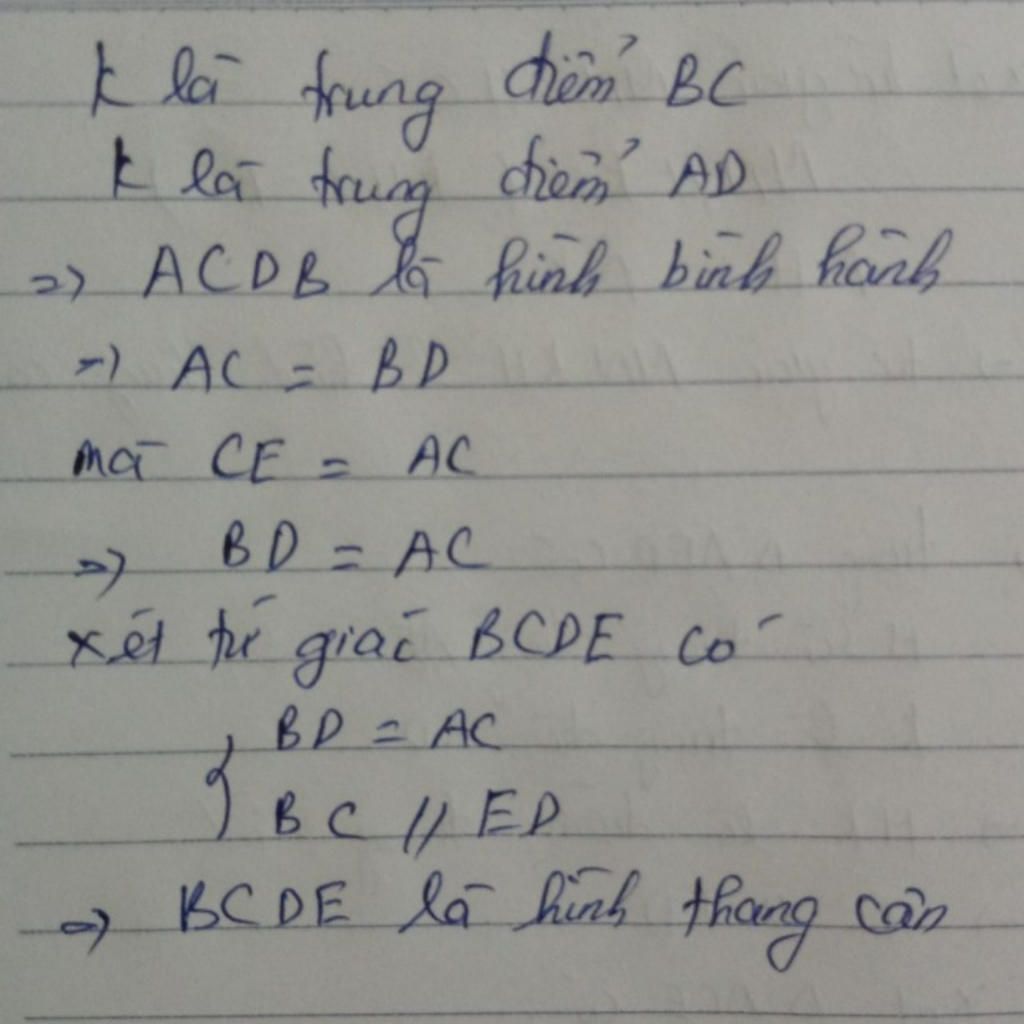 K là trung điểm BC
K là trung điểm AD
=> ACDB là hình bình hành
=> AC = BD
mà CE = AC
=> BD = AC
xét tứ giác BCDE có
{ BD = AC
BC // ED
=> BCDE là hình thang cân